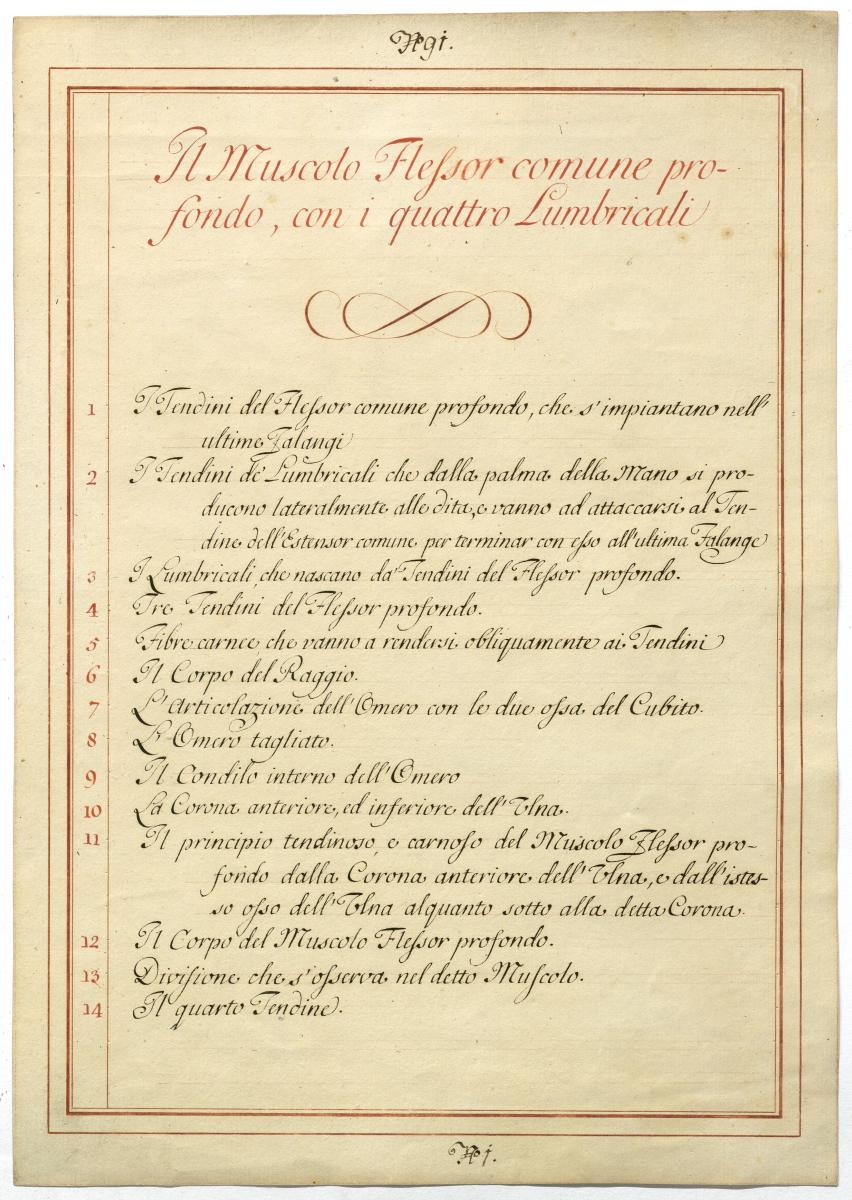 No 91.
Il Muscolo Flessor comune pro-
fondo, con i quattro Lumbricali
1 I Tendini del Flessor comune profondo, che s'impiantano nell'
ultime Falangi
2 I Tendini de' Lumbricali che dalla palma della Mano si pro-
ducono lateralmente alle dita, e vanno ad attaccarsi al Ten-
dine dell'Estensor comune per terminar con esso all'ultima Falange
3 I Lumbricali, che nascano da' Tendini del Flessor profondo.
4 Tre Tendini del Flessor profondo.
5 Fibre carnee, che vanno a rendersi obliquamente ai Tendini
6 Il Corpo del Raggio.
7 L'Articolazione dell'Omero con le due ossa del Cubito.
8 L'Omero tagliato.
9 Il Condilo interno dell'Omero
10 La Corona anteriore, ed inferiore dell'Ulna.
11 Il principio tendinoso, e carnoso del Muscolo Flessor pro-
fondo dalla Corona anteriore dell'Ulna, e dall'istes-
so osso dell'Ulna alquanto sotto alla detta Corona.
12 Il Corpo del Muscolo Flessor profondo.
13 Divisione che s'osserva nel detto Muscolo.
14 Il quarto Tendine.